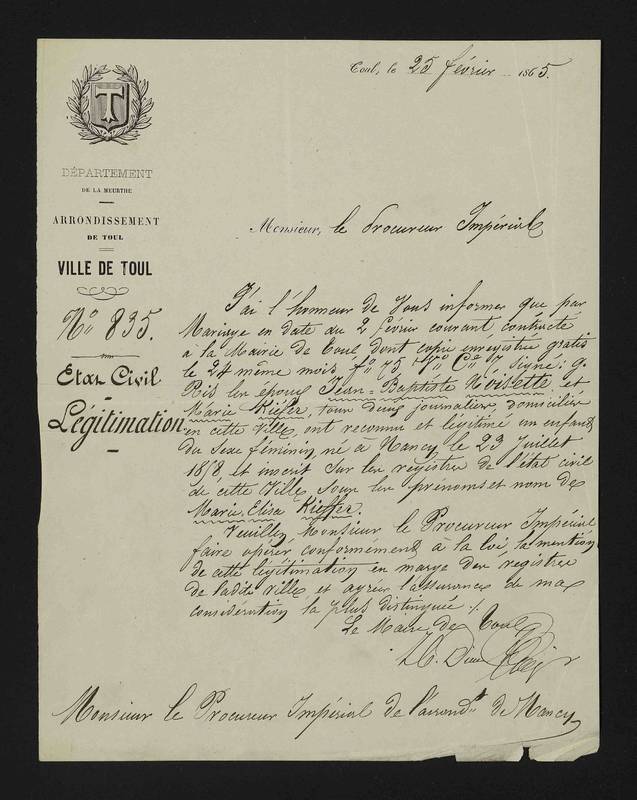 T
DÉPARTEMENT
DE LA MEURTHE
ARRONDISSEMENT
DE TOUL
VILLE DE TOUL
N° 835.
Etat Civil
Légitimation
Toul, le 25 février 1865.
Monsieur, le Procureur Impérial
J'ai l'honneur de Vous informer que par
Mariage en date du 2 février courant contracté
a la Mairie de Toul dont copie enregistrée gratis
le 24 même mois f° 75 V° C° 7 signé: G.
les époux Jean-Baptiste Noisette et
Marie Kiefer, tous deux journaliers domiciliés
en cette Ville, ont reconnu et légitimé un enfant
du Sexe féminin né à Nancy le 23 Juillet
et inscrit Sur les registres de l'état civil
de cette Ville, sous les prénoms et nom de
Marie Elisa Kieffer.
Veuillez, Monsieur le Procureur Impérial
faire opérer conformément à la loi, la mention
de cette légitimation en marge des registres
de ladite Ville et agréer l'assurance de ma
considération la plus distinguée ./.
Le Maire de Toul
Monsieur le Procureur Impérial de l'arrondt de Nancy